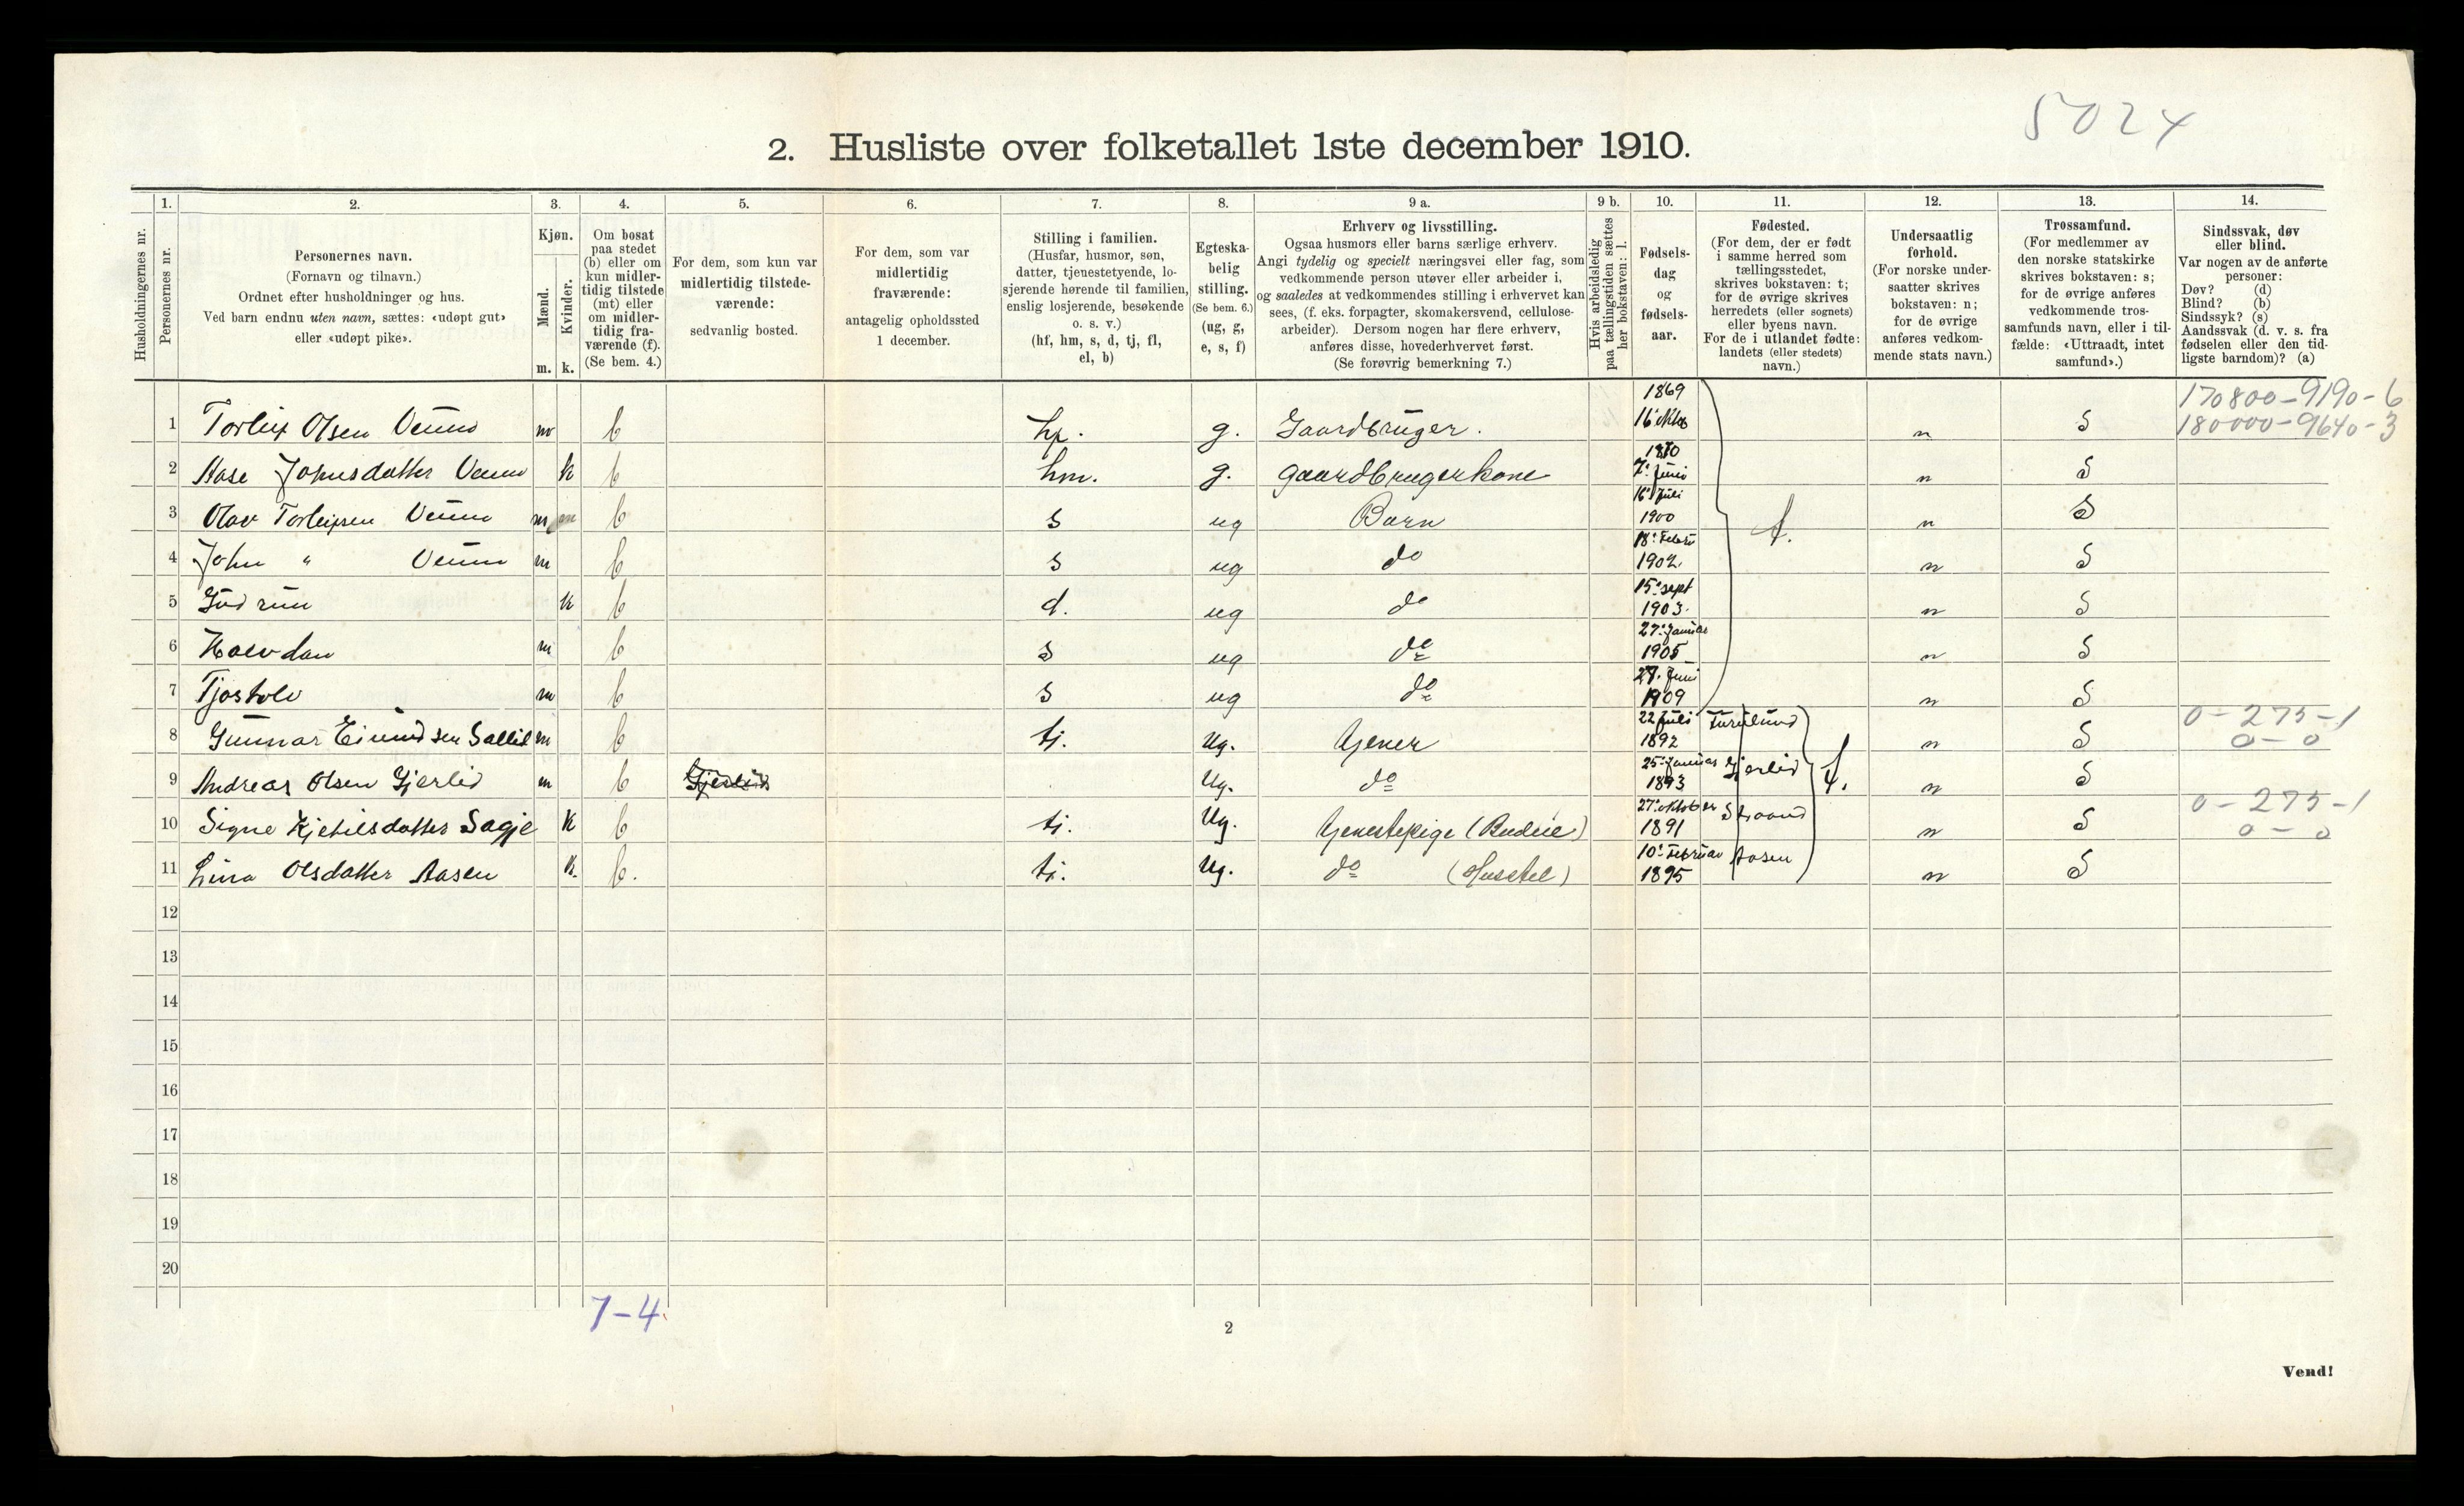 5024
2. Husliste over folketallet 1ste december 1910.
Husholdningernes nr.
1.
Personernes nr.
2.
Personernes navn.
(Fornavn og tilnavn.)
Ordnet efter husholdninger og hus.
Ved barn endnu uten navn, sættes: «udøpt gut»
eller «udøpt pike».
3.
Kjøn.
Mænd.
Kvinder.
m. k.
4.
Om bosat
paa stedet
(b) eller om
kun midler-
tidig tilstede
(mt) eller
om midler-
tidig fra-
værende (f).
(Se bem. 4.)
5.
For dem, som kun var
midlertidig tilstede-
værende:
sedvanlig bosted.
6.
For dem, som var
midlertidig
fraværende:
antagelig opholdssted
1 december.
7.
Stilling i familien.
(Husfar, husmor, søn,
datter, tjenestetyende, lo-
sjerende hørende til familien,
enslig losjerende, besøkende
o. s. v.)
(hf, hm, s, d, tj, fl,
el, b)
8.
Egteska-
belig
stilling.
(Se bem. 6.)
(ug, g,
e, s, f)
9 a.
Erhverv og livsstilling.
Ogsaa husmors eller barns særlige erhverv.
Angi tydelig og specielt næringsvei eller fag, som
vedkommende person utøver eller arbeider i,
og saaledes at vedkommendes stilling i erhvervet kan
sees, (f. eks. forpagter, skomakersvend, cellulose-
arbeider). Dersom nogen har flere erhverv,
anføres disse, hovederhvervet først.
(Se forøvrig bemerkning 7.)
9 b.
Hvis arbeidsledig
paa tællingstiden sættes
her bokstaven: l.
10.
Fødsels-
dag
og
fødsels-
aar.
11.
Fødested.
(For dem, der er født
i samme herred som
tællingsstedet,
skrives bokstaven: t;
for de øvrige skrives
herredets (eller sognets)
eller byens navn.
For de i utlandet fødte:
landets (eller stedets)
navn.)
12.
Undersaatlig
forhold.
(For norske under-
saatter skrives
bokstaven: n;
for de øvrige
anføres vedkom-
mende stats navn.)
13.
Trossamfund.
(For medlemmer av
den norske statskirke
skrives bokstaven: s;
for de øvrige anføres
vedkommende tros-
samfunds navn, eller i til-
fælde: «Uttraadt, intet
samfund».)
14.
Sindssvak, døv
eller blind.
Var nogen av de anførte
personer:
Døv? (d)
Blind? (b)
Sindssyk? (s)
Aandssvak (d. v. s. fra
fødselen eller den tid-
ligste barndom)? (a)
170800-9190-6
180000-9640-3
1 Torleif Olsen Veum m b hf. g. Gaardbruger. 1869 16 oktob n S
2 Aase Johnsdatter Veum k b hm. g. gaardbrugerkone 1870 7. Juni n S
3 Olav Torleifsen Veum m b s ug Barn 16 Juli 1900 t. n S
4 John " Veum m b s ug do 18. Febru 1902 n S
5 Gudrun k b d. ug do 15. sept 1903. n S
6 Halvdan m b s ug do 27. Januar 1905 n S
7 Tjostolv m b s ug do 27. Juni 1909 n S
8 Gunnar Eivindsen m b tj. Ug. tjener 22 Juli 1892 n S 0-275-1 0-0
9 Andreas Olsen Gjerlid m b Gjerlid Ug. do 25. Januar 1893 Gjerlid t. n S
10 Signe Kjetilsdatter Sagje K b tj. Ug. tjenestepige (Budeie) 27. oktober 1891 Straand n S 0-275-1 0-0
11 Lina Olsdatter Aasen K. b. tj. Ug. do (Husstel) 10. Februar 1895 Aasen n S
12
13
14
15
16
17
18
19
20
7-4
2
Vend!